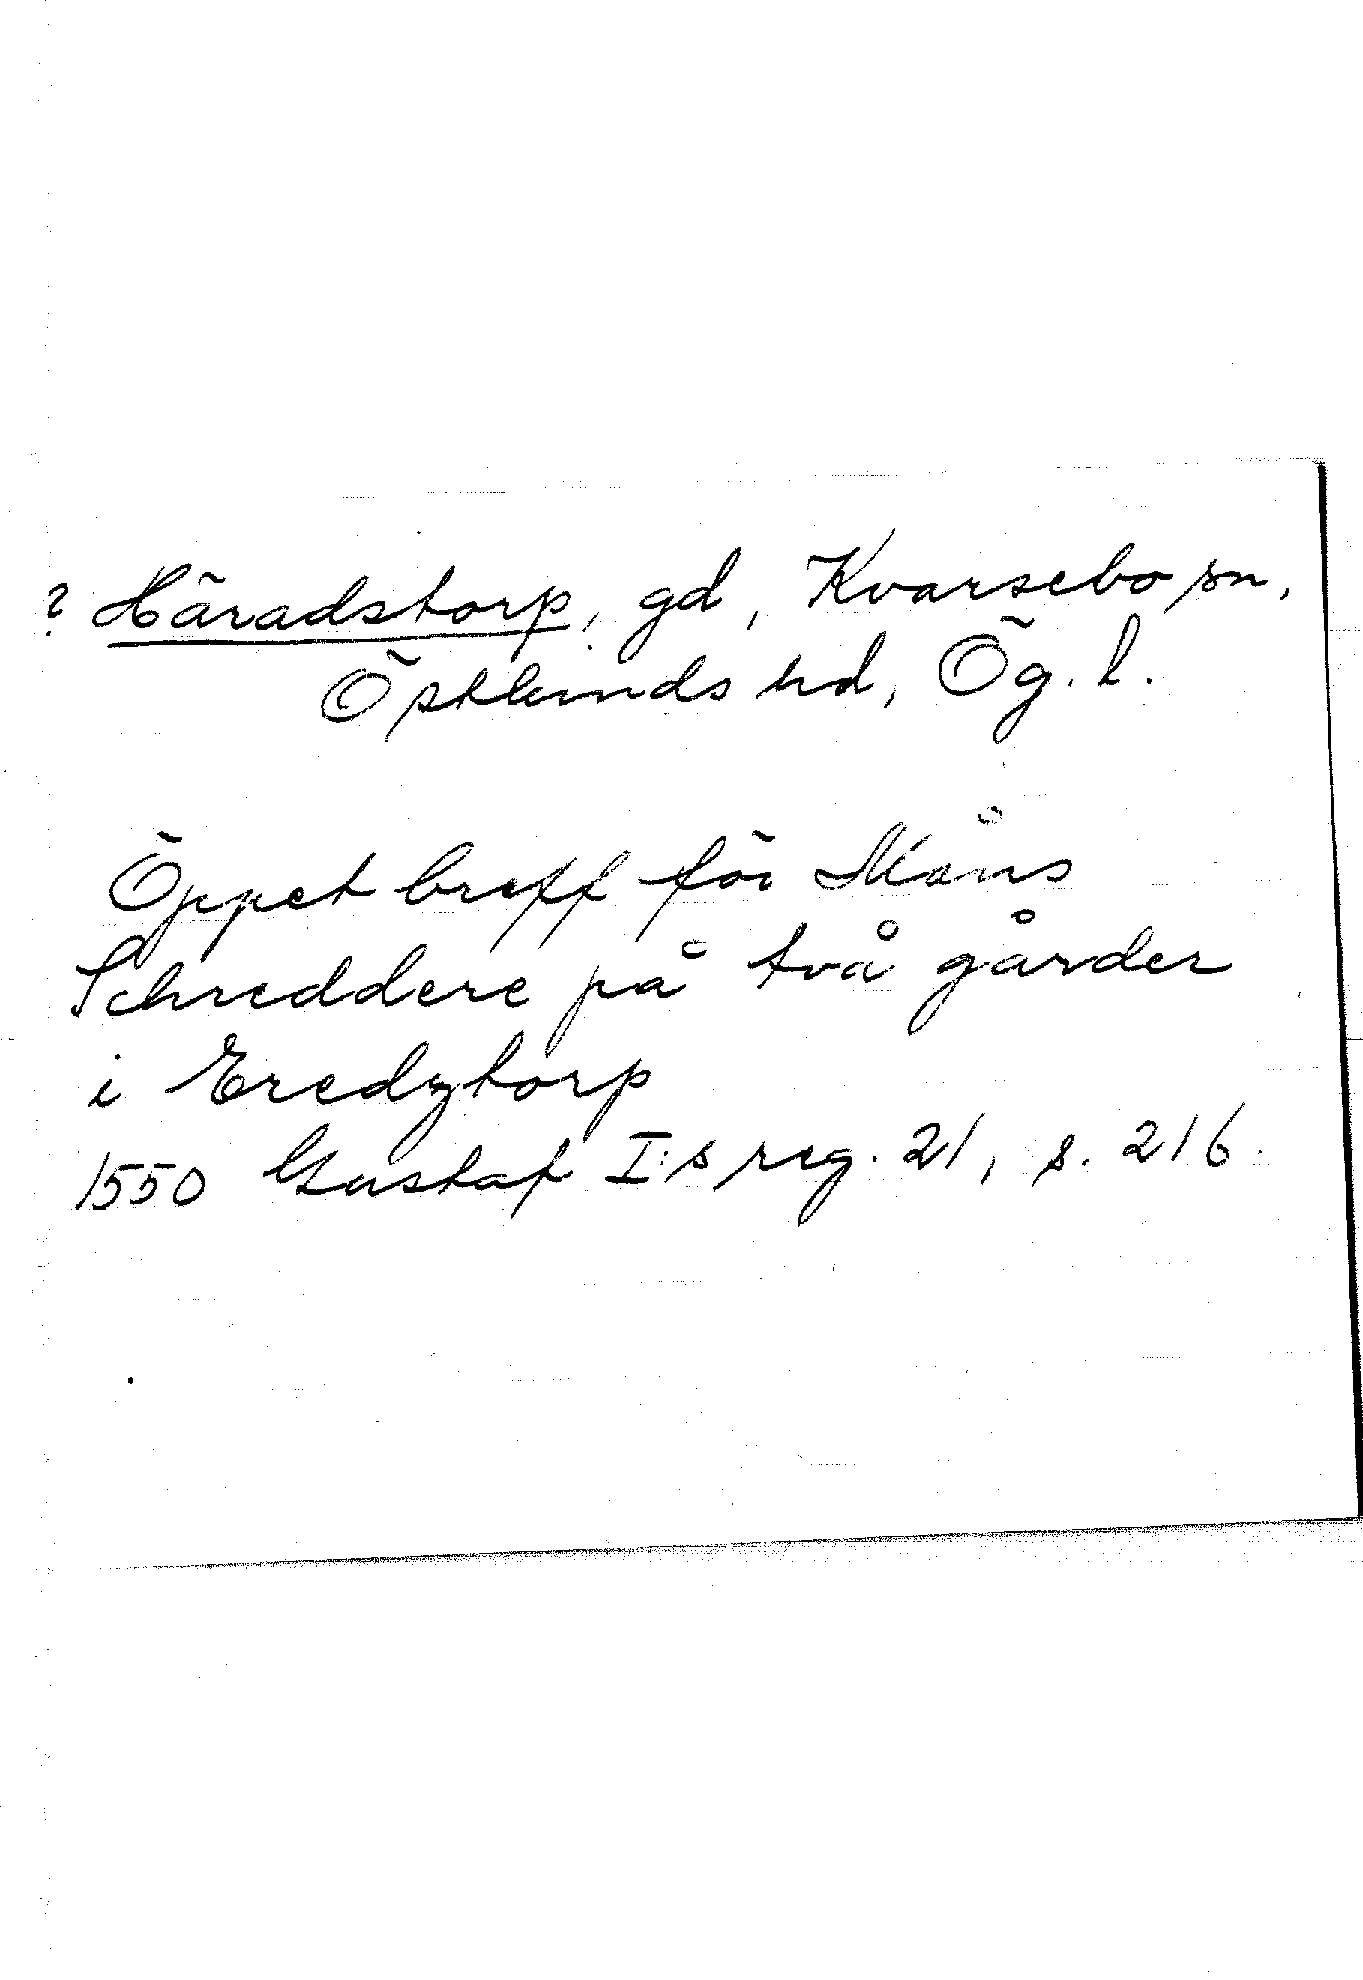 ? Häradstorp, gd, Kvarsebo sn,
Östkinds hd, Ög. l.
Öppet breff för Måns
Schreddere på två gårder
i Eredztorp
1550 Gustaf I:s reg. 21, s. 216.